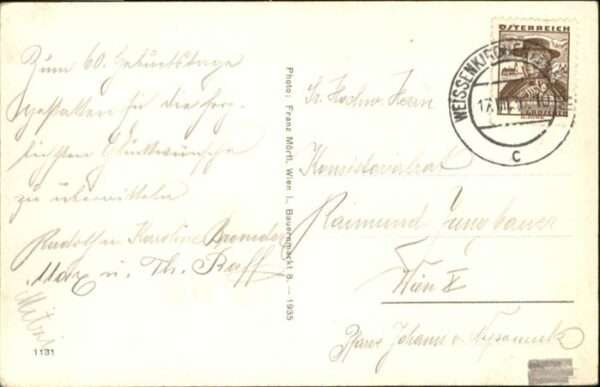 Zum 60. Geburtstage
gestatten Sie die herz-
lichsten Glückwünsche
zu übermitteln
Rudolf u. Karoline
Max u. Th. Raff
Mitzi
1131
Photo: Franz Mörtl, Wien I., Bauernmarkt 8. — 1935
ÖSTERREICH
GROSCHEN
WEISSENKIRCHEN
17.VII.
c
Sr. Hochw. Herrn
Konsistorialrat
Raimund Jungbauer
Wien X
Pfarre Johann v. Nepomuk